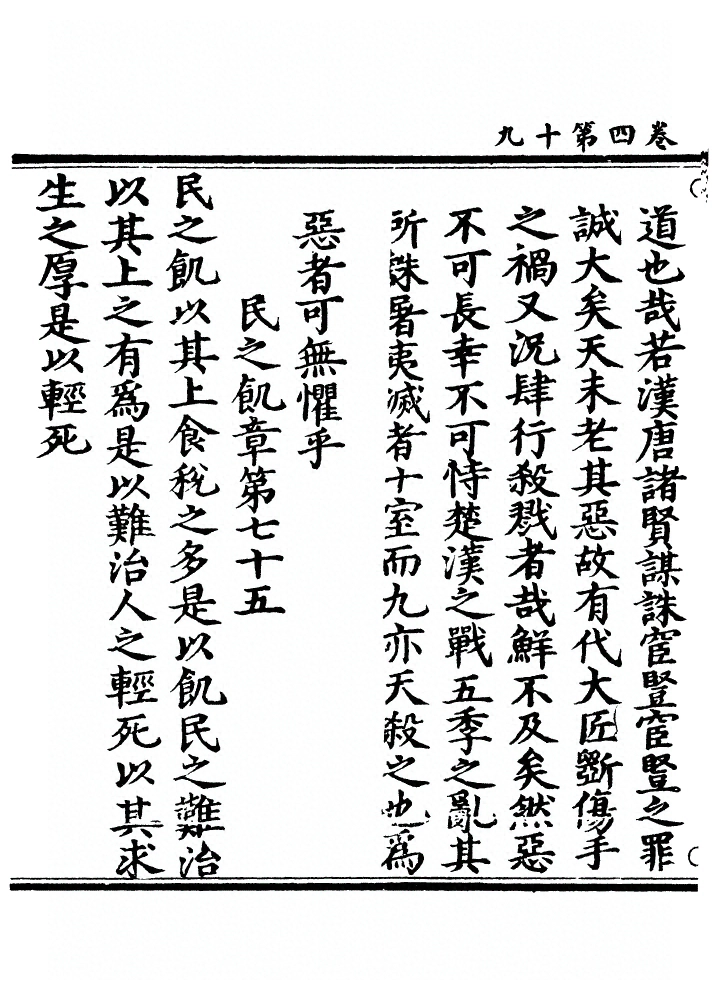 卷四第十九
道也哉若漢唐諸賢謀誅宦豎宦豎之罪
誠大矣天未老其惡故有代大匠斲傷手
之禍又況肆行殺戮者哉鮮不及矣然惡
不可長幸不可恃楚漢之戰五季之亂其
所誅屠夷滅者十室而九亦天殺之也爲
惡者可無懼乎
民之飢章第七十五
民之飢以其上食稅之多是以飢民之難治
以其上之有爲是以難治人之輕死以其求
生之厚是以輕死